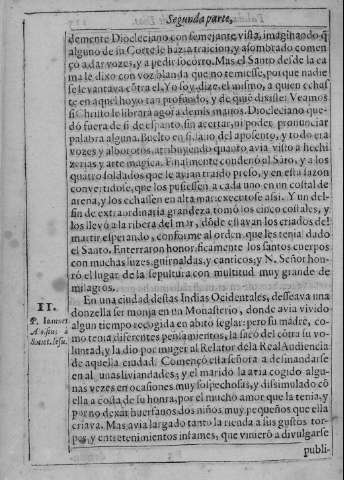 Segunda parte,
demente Diocleciano con semejante vista, imaginando q̃
alguno de su Corte le hazia traicion, y asombrado comen
ço a dar vozes, y a pedir socorro. Mas el Santo desde la ca
ma le dixo con voz blanda que no temiesse, porque nadie
se levantava cõtra el, Yo soy, dize, el mismo, a quien echaste
en aquel hoyo tan profundo, y de quiẽ dixiste: Veamos
si Christo le librarà agora de mis manos. Diocleciano que-
dò fuera de si de espanto, sin acertar, ni poder pronunciar
palabra alguna. Buelto en si, salio del aposento, y todo era
vozes y alborotos, atribuyendo quanto avia visto a hechi
zerias y arte magica. Finalmente condenò el Sãto, y a los
quatro soldados que le avian traido preso, y en esta sazon
convertidose, que los pusiessen a cada uno en un costal de
arena, y los echassen en alta mar: executose assi. Y un del-
fin de extraordinaria grandeza tomò los cinco costales, y
los llevò a la ribera del mar, dõde estavan los criados del
martir esperando, conforme al orden que les tenia dado
el Santo. Enterraron honorificamente los santos cuerpos
con muchas luzes, guirnaldas, y canticos; y N. Señor hon-
rò el lugar de la sepultura con multitud muy grande de
milagros.
II.
P. Ioannes
Societ. Iesu.
En una ciudad destas Indias Ocidentales, desseava una
donzella ser monja en un Monasterio, donde avia vivido
algun tiempo recogida en abito seglar: pero su madre, co-
mo tenia diferentes pensamientos, la sacò cõtra su vo-
luntad, y la dio por muger al Relator de la Real Audiencia
de aquella ciudad. Començò esta señora a desmandarse
en algunas liviandades; y el marido la avia cogido algu-
nas vezes en ocasiones muy sospechosas, y dissimulado cõ
ella a costa de su honra, por el mucho amor que la tenia, y
por no dexar huerfanos dos niños muy pequeños que ella
criava. Mas avia largado tanto la rienda a sus gustos tor-
pes, y entretenimientos infames, que vinierõ a divulgarse
publi-